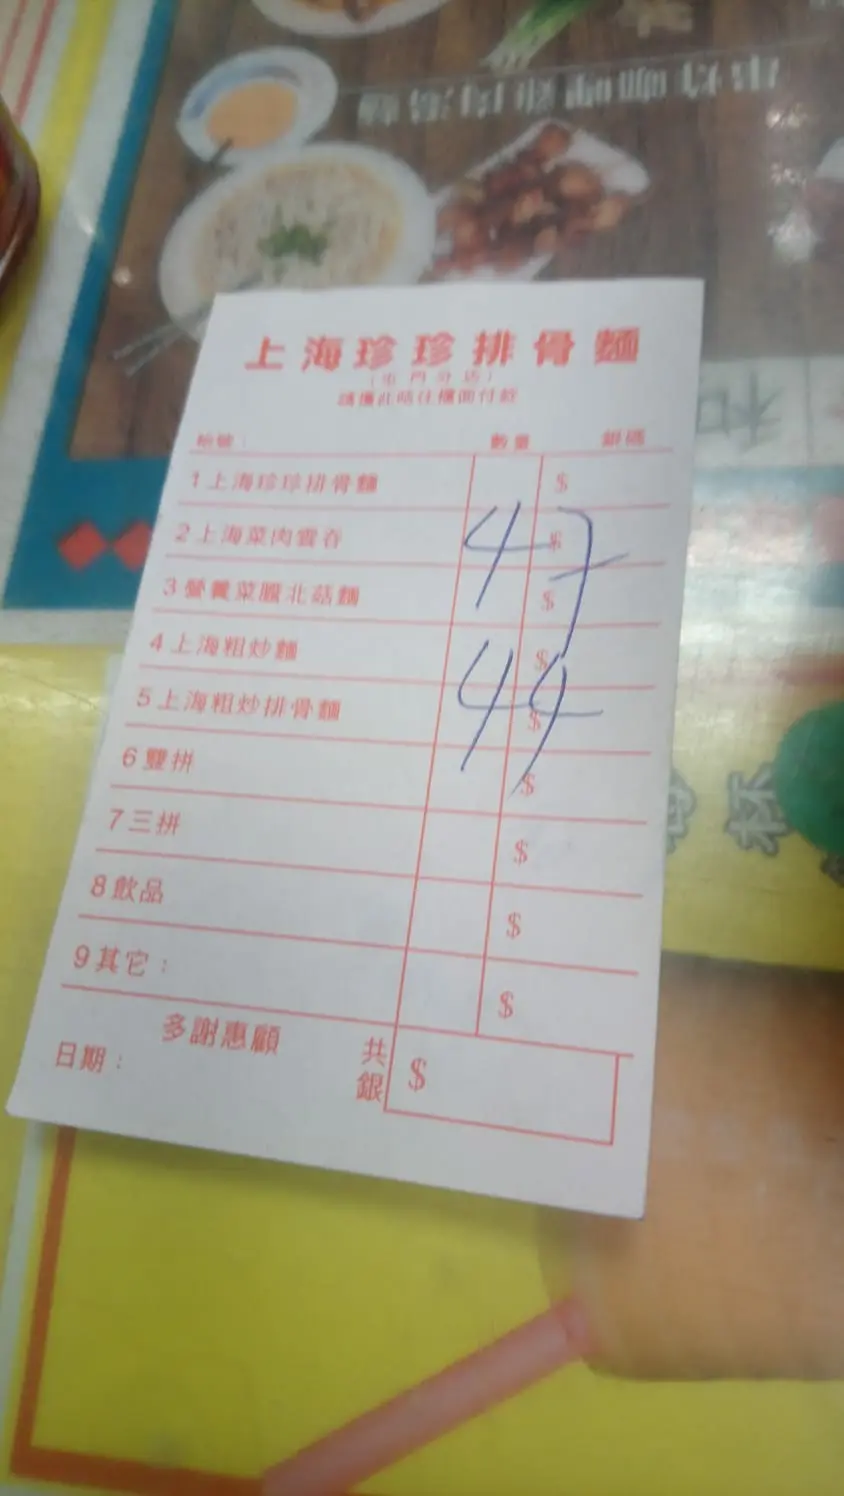 上海珍珍排骨麵
(屯門分店)
請攜此咭往櫃面付款
枱號：	數量	銀碼
1上海珍珍排骨麵	$
2上海菜肉雲吞	$
47
3營養菜膽北菇麵	$
4上海粗炒麵	$
5上海粗炒排骨麵	$
6雙拼	$
7三拼	$
8飲品	$
9其它：	$
多謝惠顧
日期：
共銀 $
杯